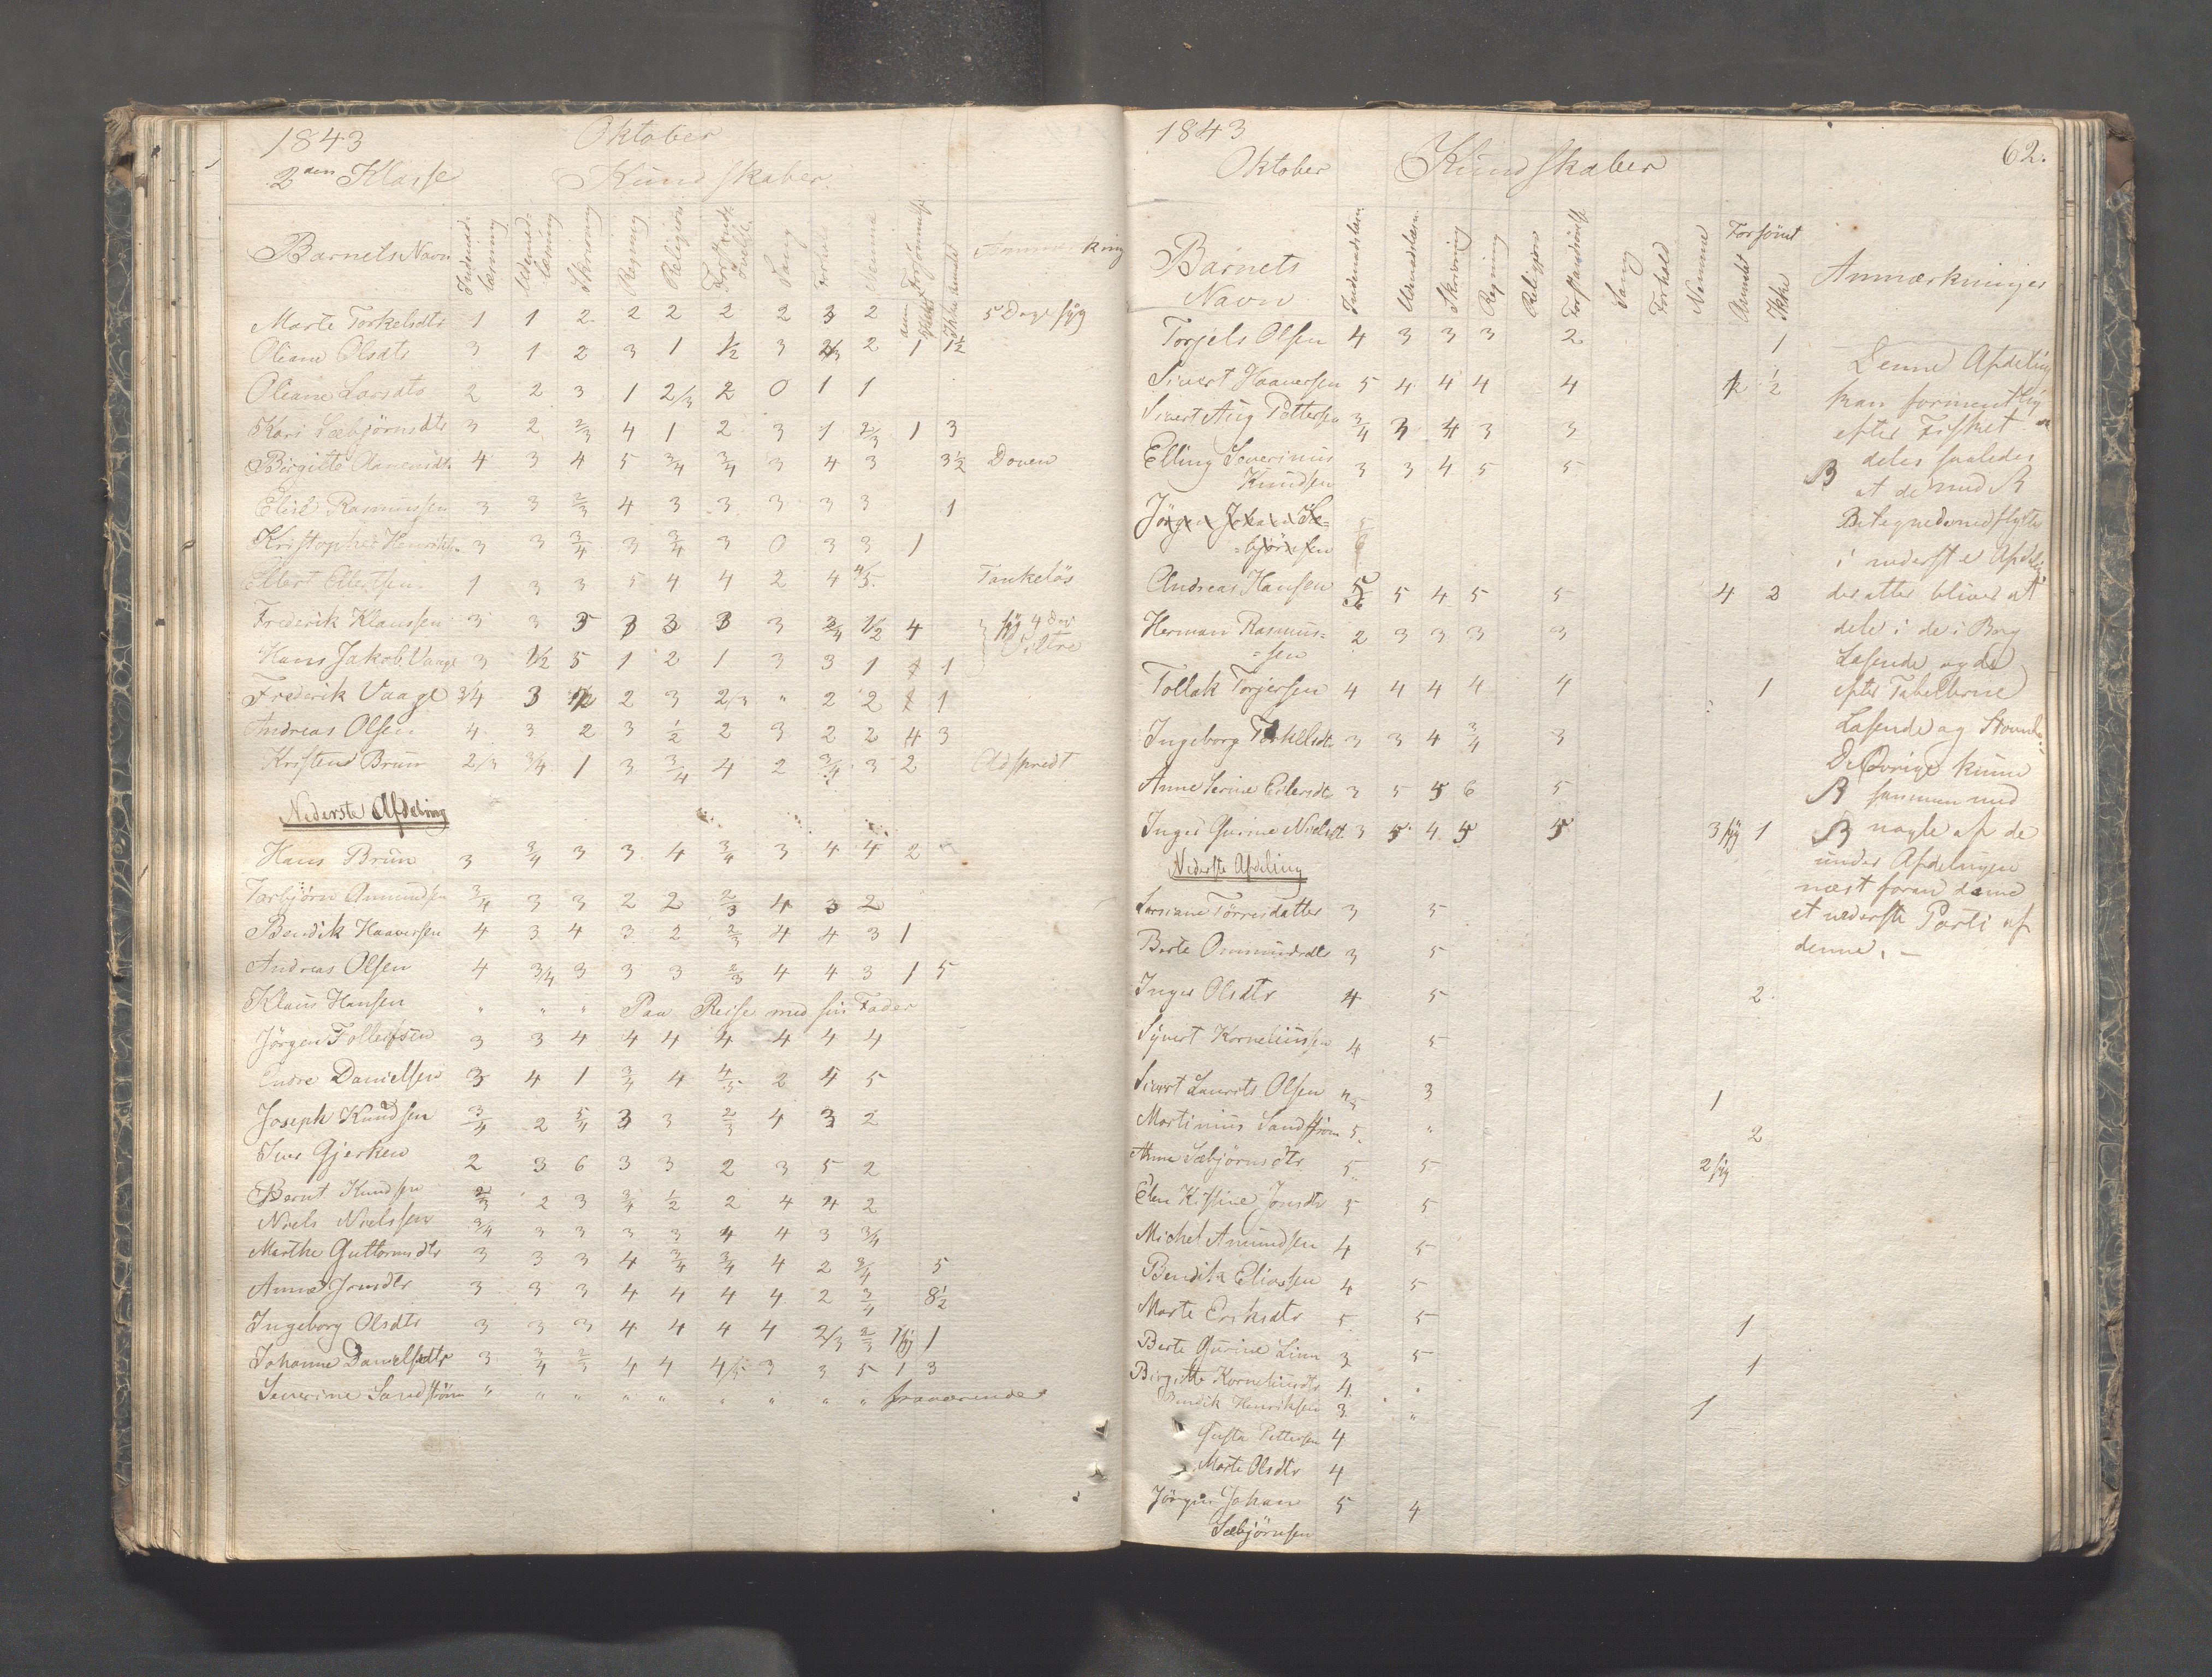 1843 Oktober
2den Klasse Kundskaber
Barnets Navn Indenads læsning Udenads læsning Skrivning Regning Religion Forstands øvelse Sang Forhold Nemme Forsømmelse Ikke anmeldt Anmærkning
Marte Torkelsdtr 1 1 2 2 2 2 2 3 2 5 Dage syg
Oliane Olsdtr 3 1 2 3 1 1/2 3 2/3 2 1 1 1/2
Oliane Larsdtr 2 2 3 1 2/3 2 0 1 1
Kari Sæbjörnsdtr 3 2 2/3 4 1 2 3 1 2/3 1 3
Birgitte 4 3 4 5 3/4 3/4 3 4 3 3 1/2 Doven
Elise Rasmussen 3 3 2/3 4 3 3 3 3 3 1
Kristopher Henriksen 3 3 3/4 3 3/4 3 0 3 3 1
Ellert Ellertsen 1 3 3 5 4 4 2 4 4/5 Tankelös
Frederik Klaussen 3 3 5 3 3 3 3 3/4 1/2 4 syg 4 Da
Hans Jakob Vaage 3 1/2 5 1 2 1 3 3 1 1 1
Frederik Vaage 3/4 3 1/2 2 3 2/3 " 2 2 1 1
Andreas Olsen 4 3 2 3 1/2 2 3 2 2 4 3
Kristens Brun 2/3 3/4 1 3 3/4 4 2 3/4 3 2 Adspredt
Nederste Afdeling
Hans Brun 3 3/4 3 3 4 3/4 3 4 4 2
Torbjörn Amundsen 3/4 3 3 2 2 2/3 4 3 2
Bendik Haaversen 4 3 4 3 2 2/3 4 4 3 1
Andreas Olsen 4 3/4 3 3 3 2/3 4 4 3 1 5
Klaus Hansen " " " Paa Reise med sin Fader
Jörgen Folleifsen 3 3 4 4 4 4 4 4 4
Endre Danielsen 3 4 1 3/4 4 4/5 2 4 5
Joseph Knudsen 3/4 2 5/4 3 3 2/3 4 3 2
Iver Gjerken 2 3 6 3 3 2 3 5 2
Bernt Knudsen 2/3 2 3 3/4 1/2 2 4 4 2
Niels Nielssen 3/4 3 3 3 3 4 4 3 3/4
Marthe Guttormsdtr 3 3 3 4 3/4 3/4 4 2 3/4 5
Anne Jonsdtr 3 3 3 4 4 4 4 2 3/4 8 1/2
Ingeborg Olsdtr 3 3 3 4 4 4 4 2/3 2/3 1 syg 1
Johanne Danielsdtr 3 3/4 2/3 4 4 4/5 3 3 5 1 3
Severine Sandström " " " " " " " " " fraværende
1843 62.
Oktober Kundskaber
Barnets Navn Indenadslæsn Udenadslæsn Skrivning Regning Religjon Forstandsövelse Sang Forhold Nemme Forsömt Anmeldt Ikke Anmærkninger
Torjels Olsen 4 3 3 3 2 1
Sivert Haaversen 5 4 4 4 4 1/2 1/2
Sivert Aug Pettersen 3/4 3 4 3 3
Elling Severinus Knudsen 3 3 4 5 5
Jörgen Johan Sæ=
=björnsen 5/6
Andreas Hansen 5/6 5 4 5 5 4 2
Herman Rasmus=
=sen 2 3 3 3 3
Tollak Torjersen 4 4 4 4 4 1
Ingeborg Torkelsdtr 3 3 4 3/4 3
Anne Serine Eilersdtr 3 5 5 6 5
Inger Gurine Nielsdt 3 5 4 5 5 3 syg 1
Nederste Afdeling
Larsiane Törresdatter 3 5
Berte Ommundsdtr 3 5
Inger Olsdtr 4 5 2
Syvert Korneliussen 4 5
Sivert Laurits Olsen 4/5 3 1
Martinius Sandström 5 " 2
Anne Sæbjörnsdtr 5 5 2 syg
Elen Kistine Jonsdtr 5 5
Michel Amundsen 4 5
Bendik Eliassen 4 5
Marte Eriksdtr 5 5 1
Berte Gurine Linn 3 5 1
Birgitte Korneliusdtr 4 "
Bendik Henriksen 3 " 1
Gusta Pettersen 4
Marte Olsdtr 4
Jörgen Johan 5 4
Sæbjörnsen
Denne Afdeling
kan formentlig
efter Fisket
deles saaledes
B at de med B
Betegnede nedflyttes
i nederste Afdeling
der atter bliver at
dele i de i Bog
Læsende og de
efter Tabellerne
Læsende og Stavende
De Övrige kunne
B sammen med
B nogle af de
under Afdelingen
næst foran danne
et nederste Parti af
denne. —